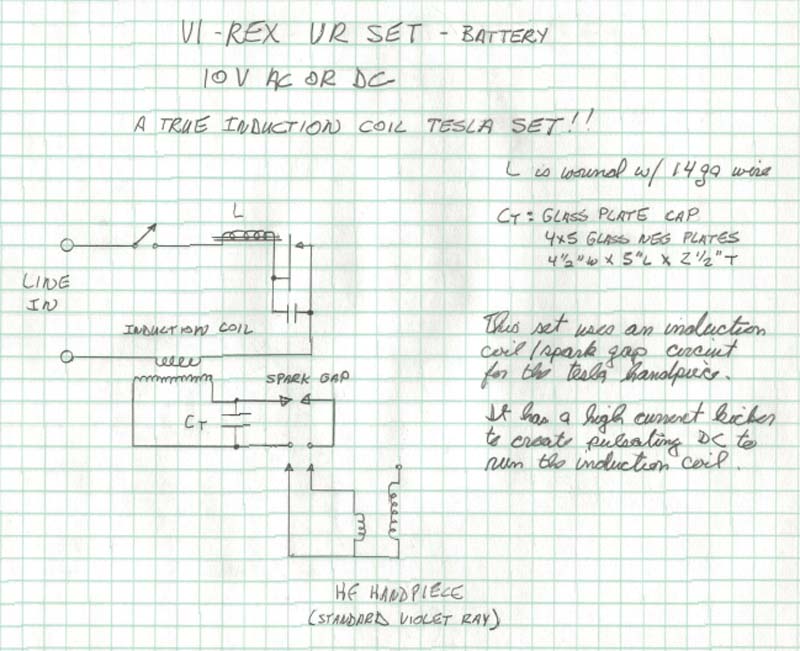 VI-REX UR SET - BATTERY
10V AC OR DC
A TRUE INDUCTION COIL TESLA SET!!
L is wound w/ 14ga wire
CT = GLASS PLATE CAP
4x5 GLASS NEG PLATES
4 1/2" W x 5" L x 2 1/2" T
L
LINE
IN
INDUCTION COIL
SPARK GAP
CT
This set uses an induction
coil/spark gap circuit
for the tesla handpiece.
It has a high current kicker
to create pulsating DC to
run the induction coil.
HF HANDPIECE
(STANDARD VIOLET RAY)